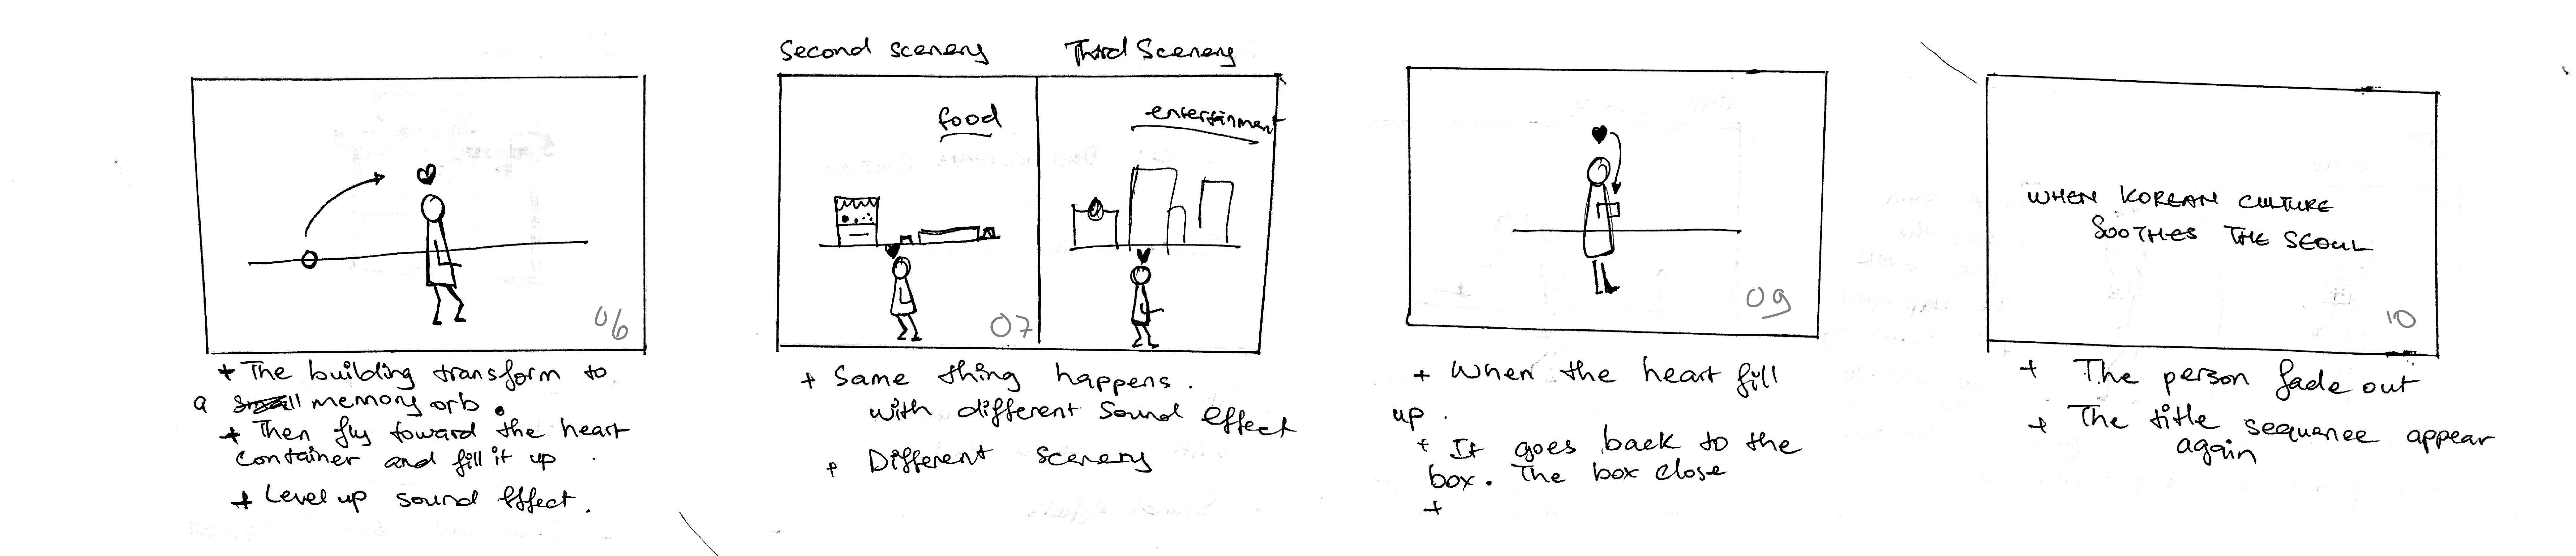 + The building transform to
a memory orb.
+ Then fly toward the heart
container and fill it up.
+ Level up sound effect.
06
Second scenery
food
07
Third Scenery
entertainment
+ Same thing happens.
with different sound effect
+ Different scenery
09
+ When the heart fill
up.
+ It goes back to the
box. The box close
+
WHEN KOREAN CULTURE
SOOTHES THE SEOUL
10
+ The person fade out
+ The title sequence appear
again